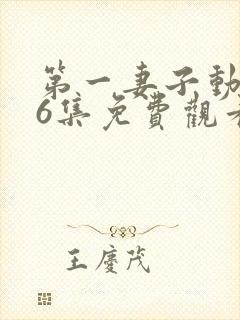 第一妻子動
6集免費觀看
王慶茂